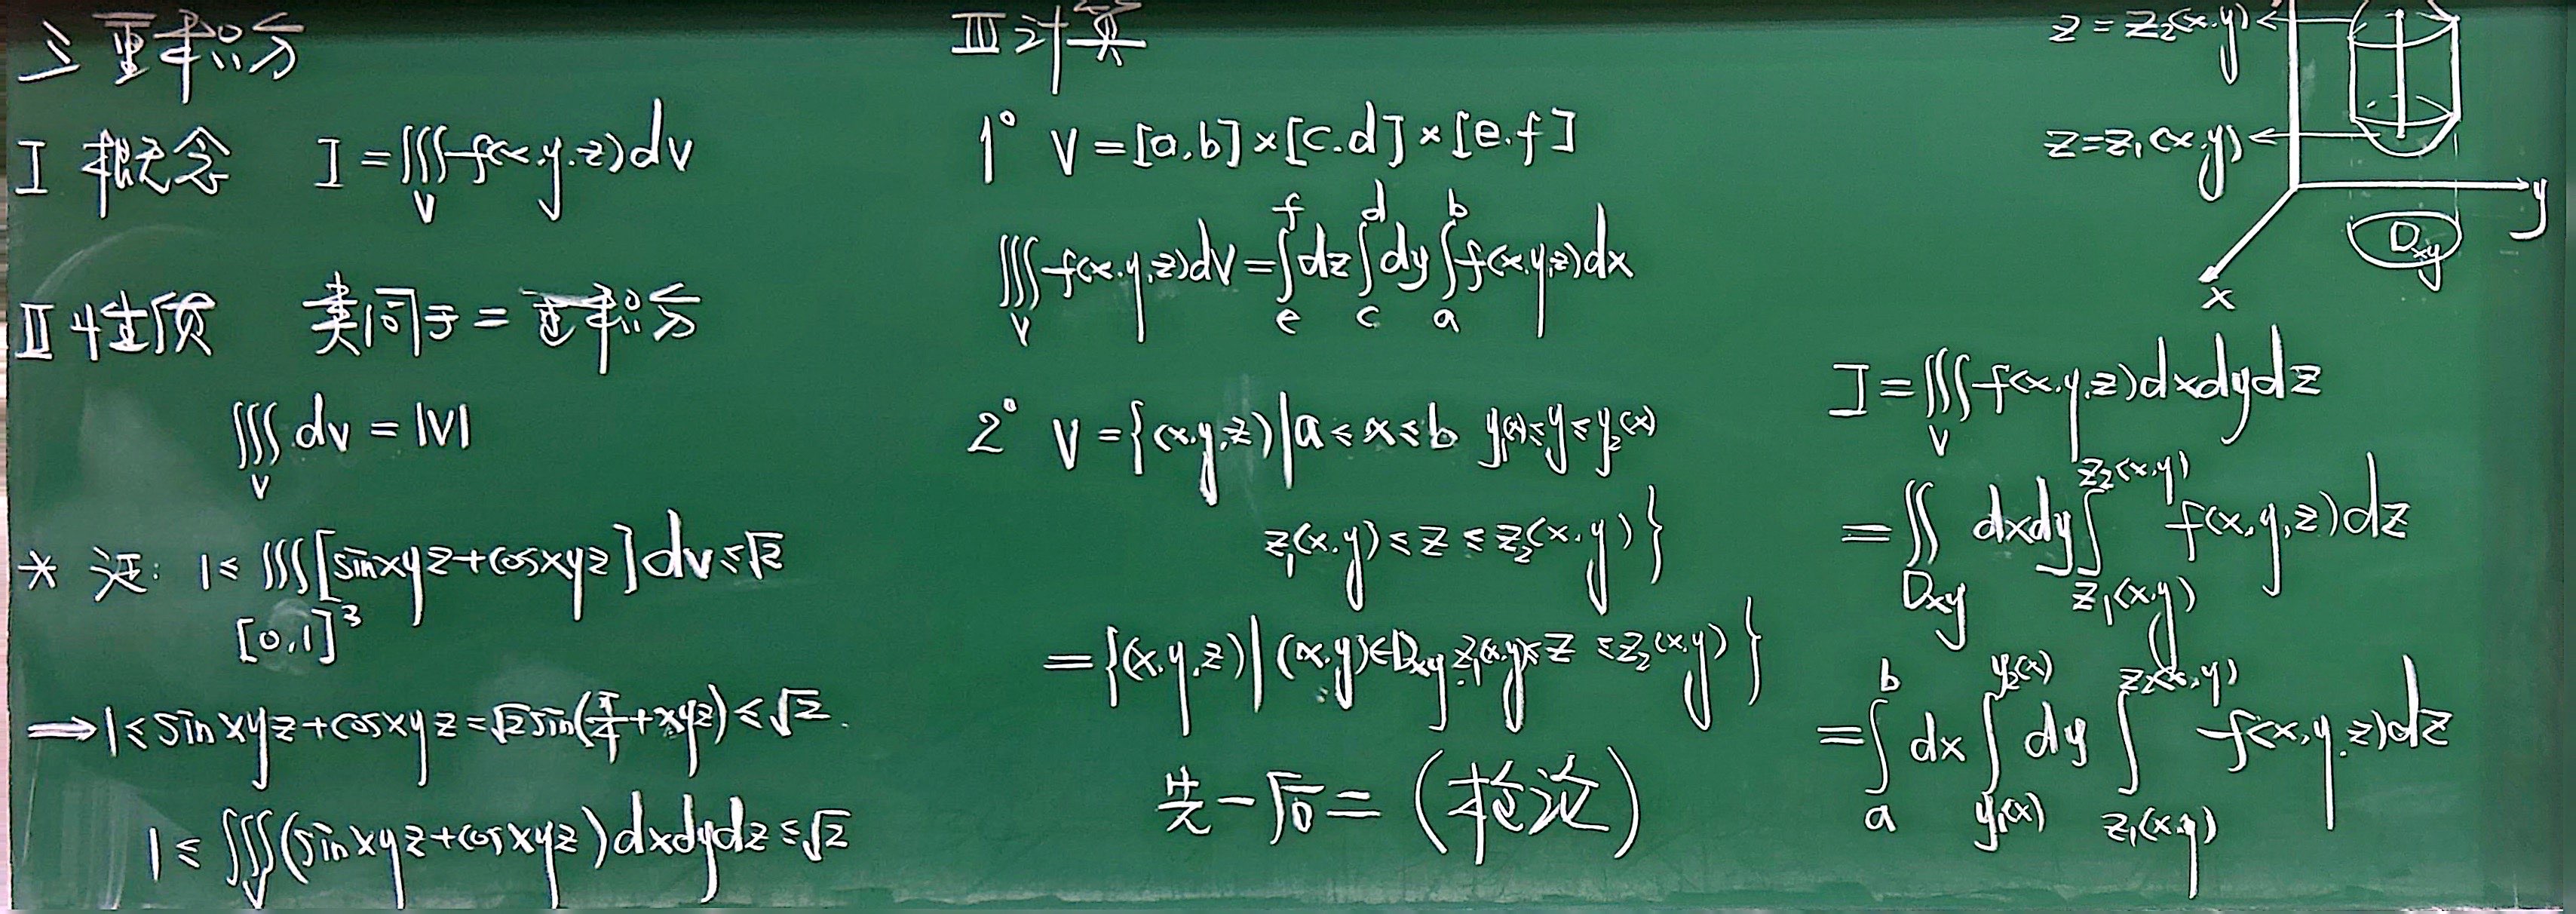 三重积分
I 概念 I = ∭_V f(x,y,z)dv
II 性质 类同于二重积分
∭_V dv = |V|
* 证: 1 ≤ ∭_{[0,1]^3} [sinxyz+cosxyz]dv ≤ √2
⟹ 1 ≤ sinxyz+cosxyz = √2 sin(π/4+xyz) ≤ √2.
1 ≤ ∭_V (sinxyz+cosxyz)dxdydz ≤ √2
III 计算
1° V = [a,b]×[c,d]×[e,f]
∭_V f(x,y,z)dV = ∫_e^f dz ∫_c^d dy ∫_a^b f(x,y,z)dx
2° V = {(x,y,z)|a ≤ x ≤ b y₁(x) ≤ y ≤ y₂(x)
z₁(x,y) ≤ z ≤ z₂(x,y)}
= {(x,y,z)|(x,y)∈D_xy, z₁(x,y) ≤ z ≤ z₂(x,y)}
先一后二 (投影)
z = z₂(x,y)
z = z₁(x,y)
y
D_xy
x
I = ∭_V f(x,y,z)dxdydz
= ∬_{D_xy} dxdy ∫_{z₁(x,y)}^{z₂(x,y)} f(x,y,z)dz
= ∫_a^b dx ∫_{y₁(x)}^{y₂(x)} dy ∫_{z₁(x,y)}^{z₂(x,y)} f(x,y,z)dz